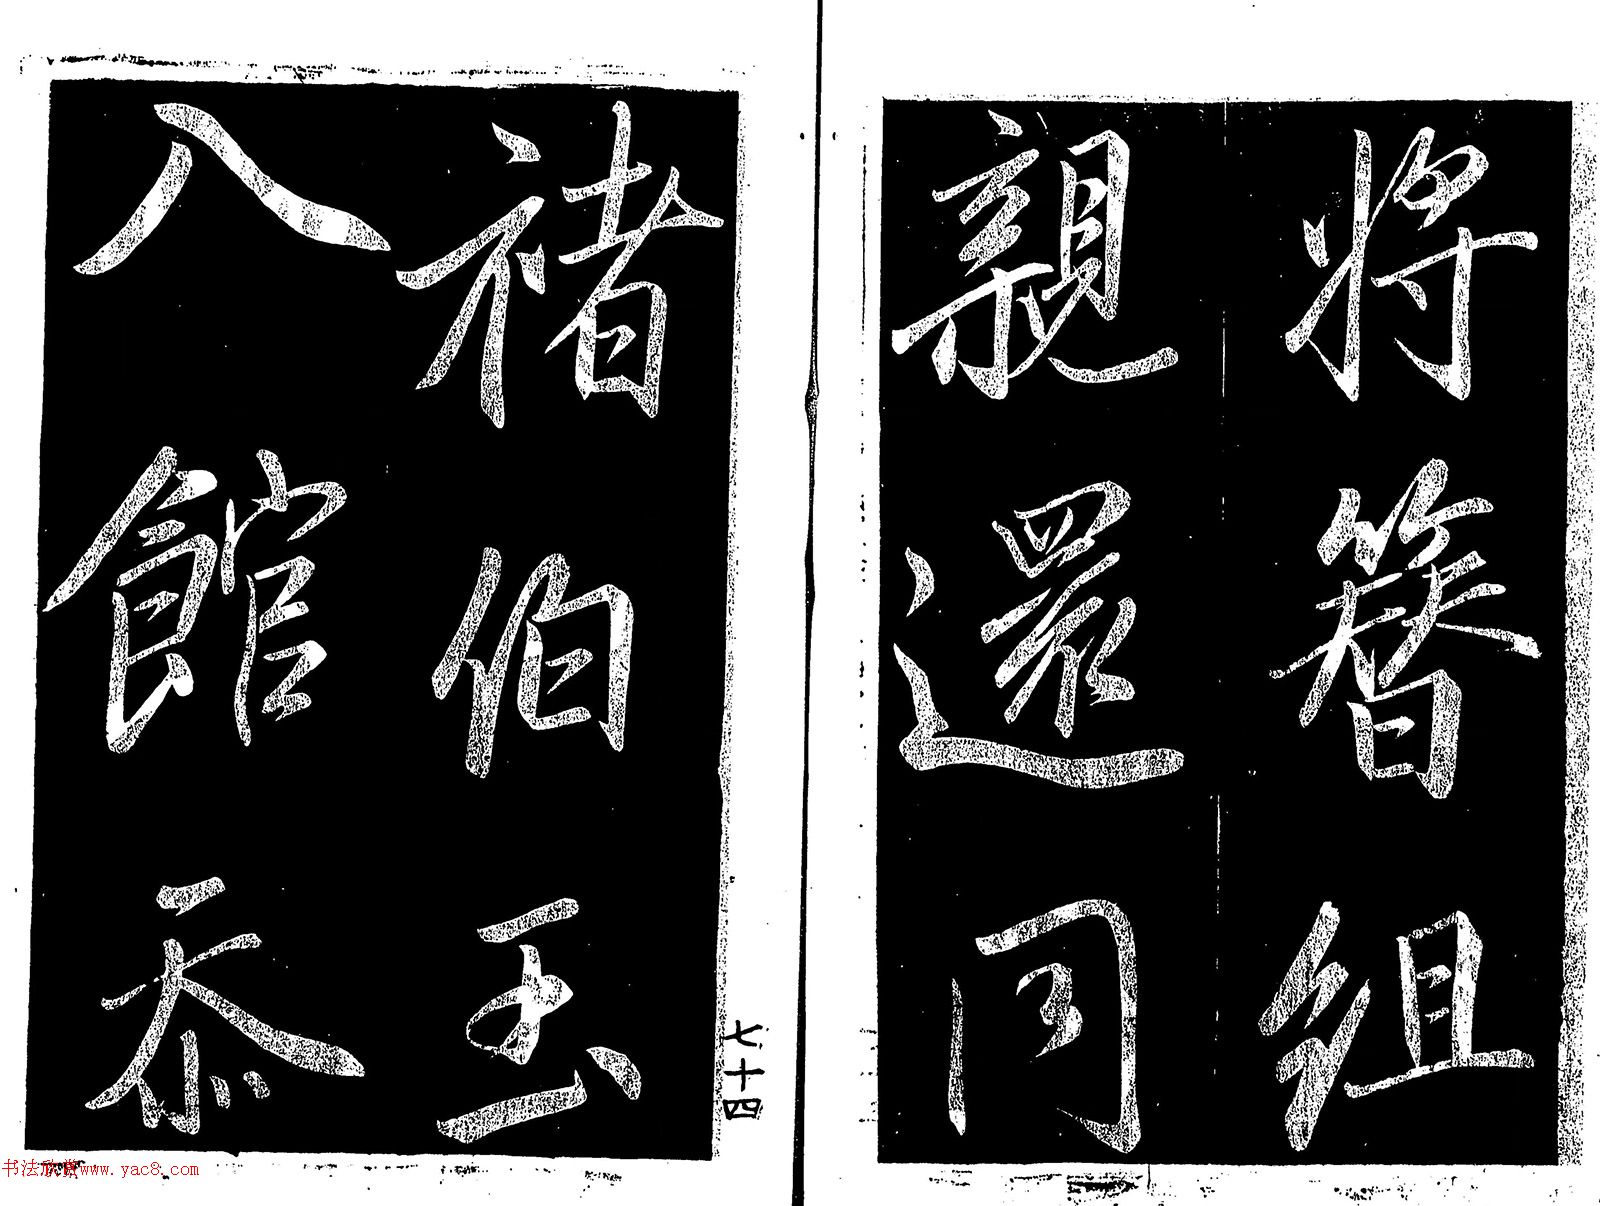 將簪組
親還同
褚伯玉
入館忝
七十四
书法欣赏www.yac8.com